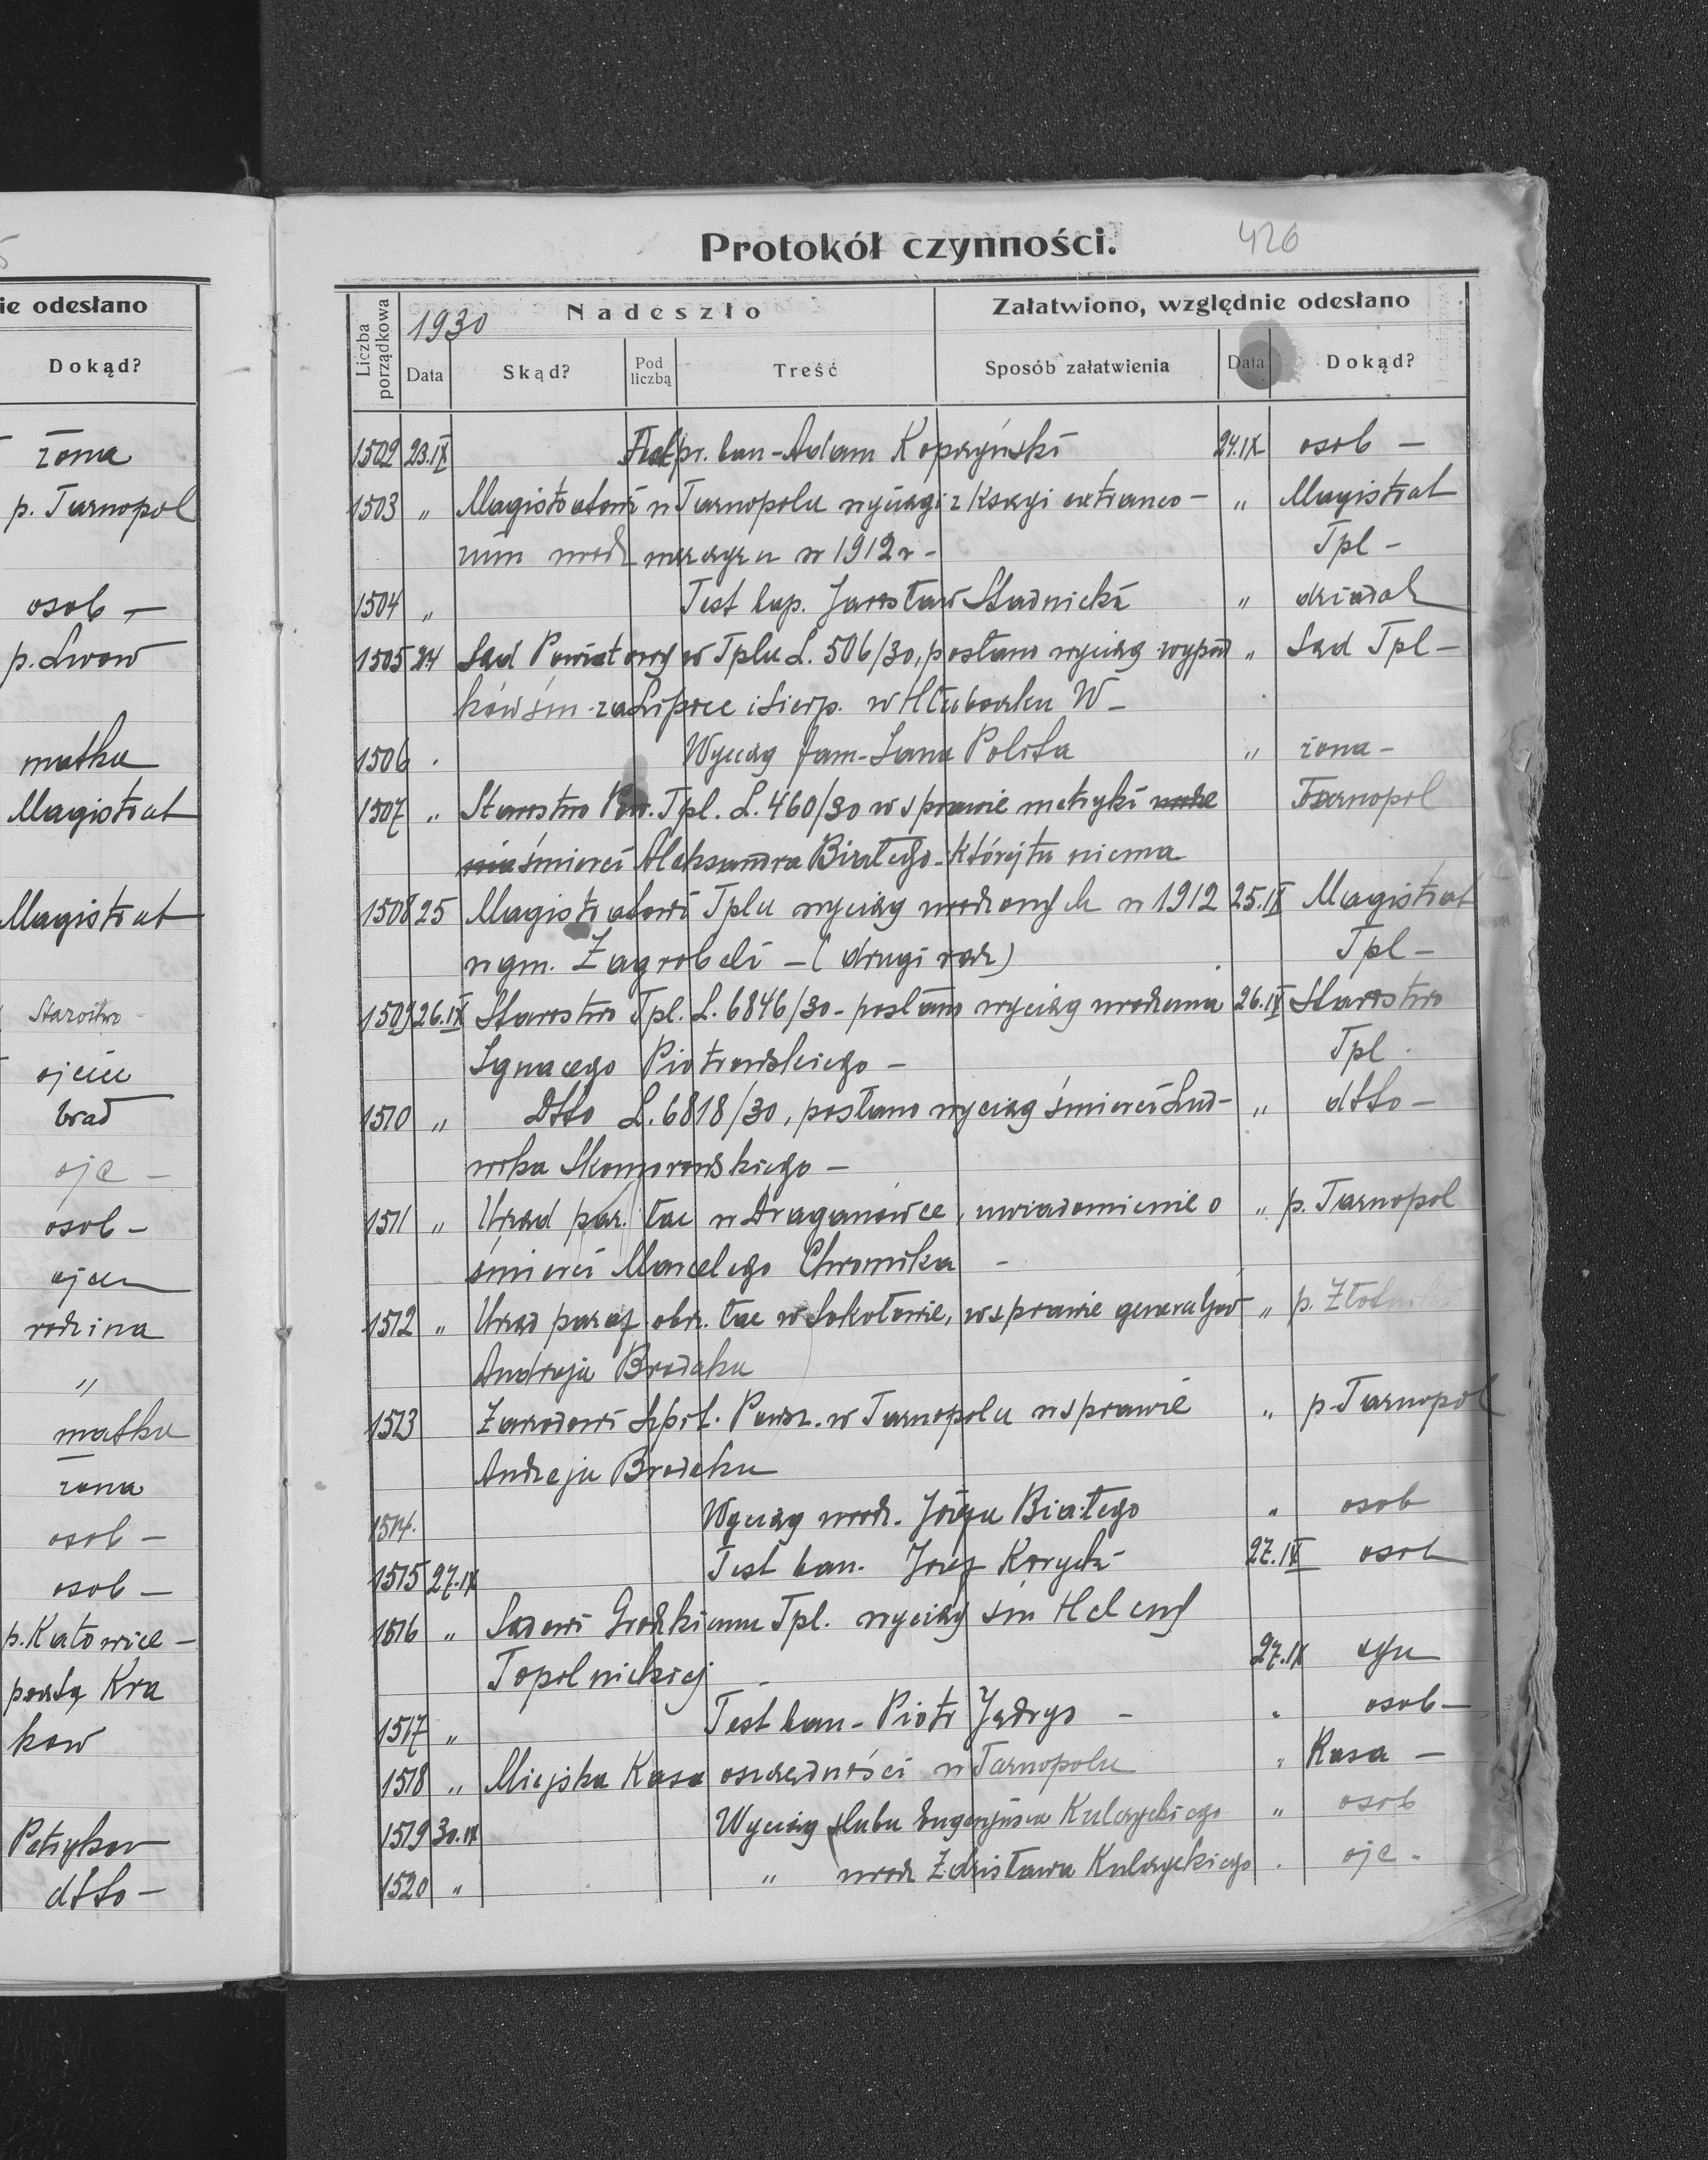 ie odesłano
Dokąd?
żona
p. Tarnopol
osob —
p. Lwow
matka
Magistrat
Magistrat
Starostwo -
ojciec
brat
ojc —
osob -
ojciec
rodzina
"
matka
żona
osob —
osob —
p. Katowice —
pocztą Kra
kow
Petrykow
dtto —
Protokół czynności.
426
Liczba porządkowa
1930
Nadeszło
Załatwiono, względnie odesłano
Data Skąd? Pod liczbą Treść Sposób załatwienia Data Dokąd?
1502 23.IX Test pr. ban - Adam Kopczyński 24.IX osob —
1503 " Magistratowi w Tarnopolu wyciągi z Księgi extraneo- " Magistrat
rum urodz mężczyzn w 1912 r - Tpl -
1504 " Test kup. Jarosław Stadnicki " dziadek
1505 24 Sąd Powiatowy w Tplu L. 506/30, posłano wyciąg wypad " Sąd Tpl -
ków śm. za Lipiec i Sierp. w Hłuboczku W -
1506 . Wyciąg fam - Jana Polita " żona -
1507 " Starostwo Pow. Tpl. L. 460/30 w sprawie metryki Tarnopol
śmierci Aleksandra Białego - której tu niema
1508 25 Magistratowi Tplu wyciąg urodzonych w 1912 25.IX Magistrat
w gm. Zagrobeli - (drugi raz) Tpl -
1509 26.IX Starostwo Tpl. L. 6846/30 - posłano wyciąg urodzenia 26.IX Starostwo
Ignacego Piotrowskiego - Tpl.
1510 " Dtto L. 6818/30, posłano wyciąg śmierci Lud- " dtto -
wika Skomorowskiego -
1511 " Urząd par. łac w Draganówce, uwiadomienie o " p. Tarnopol
śmierci Marcelego Chromika -
1512 " Urząd paraf obrz. łac w Sokołowie, w sprawie " p.
Andreja Brodaka
1513 Zarządowi Szpit. Powsz. w Tarnopolu w sprawie " p. Tarnopol
Andreja Brodaka
1514. Wyciąg urodz. Józefa Białego " osob
1515 27.IX Test ban. Józef Korycki 27.IX osob
1516 " Sądowi Grodzkiemu Tpl. wyciąg śm Heleny
Topolnickiej - 27.IX
1517 " Test ban - Piotr Jądrys - " osob -
1518 " Miejska Kasa oszczędności w Tarnopolu " Kasa -
1519 30.IX Wyciąg ślubu Eugenjusza Kulczyckiego " osob
1520 " " urodz Zdzisława Kulczyckiego . ojc -